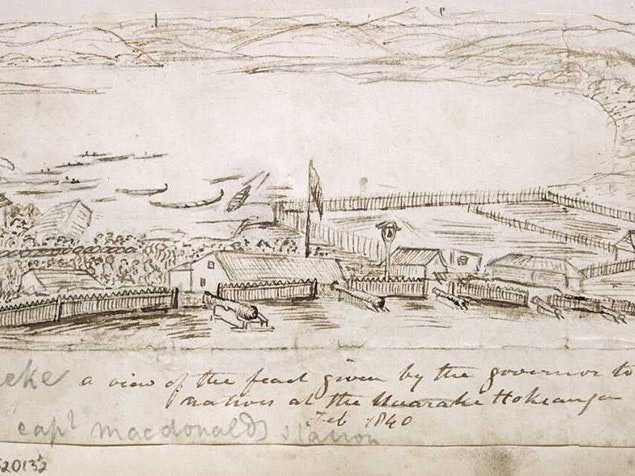 eke a view of the feast given by the governor to
natives at the Huarake Hokianga
Feb 1840
capt macdonalds station